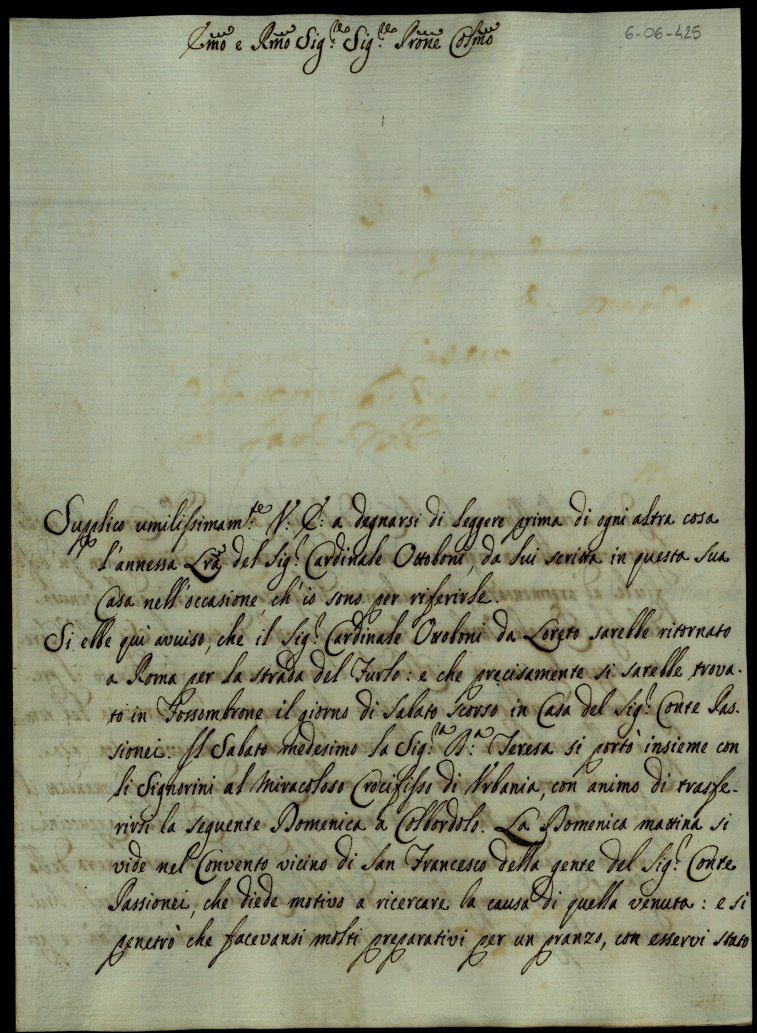 Emo e Rmo Sig.re Sig.re Prone Colmo
6-06-425
Supplico umilissimam.te V: E: a degnarsi di leggere prima di ogni altra cosa
l'annessa Lrã del Sig.r Cardinale Ottoboni, da lui scritta in questa sua
Casa nell'occasione, ch'io sono per riferirle.
Si ebbe qui avviso, che il Sig.r Cardinale Otoboni da Loreto sarebbe ritornato
a Roma per la strada del Furlo: e che precisamente si sarebbe trova-
to in Fossombrone il giorno di Sabato scorso in Casa del Sig.r Conte Pas-
sionei. Il Sabato medesimo la Sig.ra D.a Teresa si portò insieme con
li Signorini al Miracoloso Crocifisso di Urbania, con animo di trasfe-
rirsi la seguente Domenica a Colbordolo. La Domenica mattina si
vide nel Convento vicino di San Francesco della gente del Sig.r Conte
Passionei, che diede motivo a ricercare la causa di quella venuta: e si
penetrò che facevansi molti preparativi per un pranzo, con esservi stato